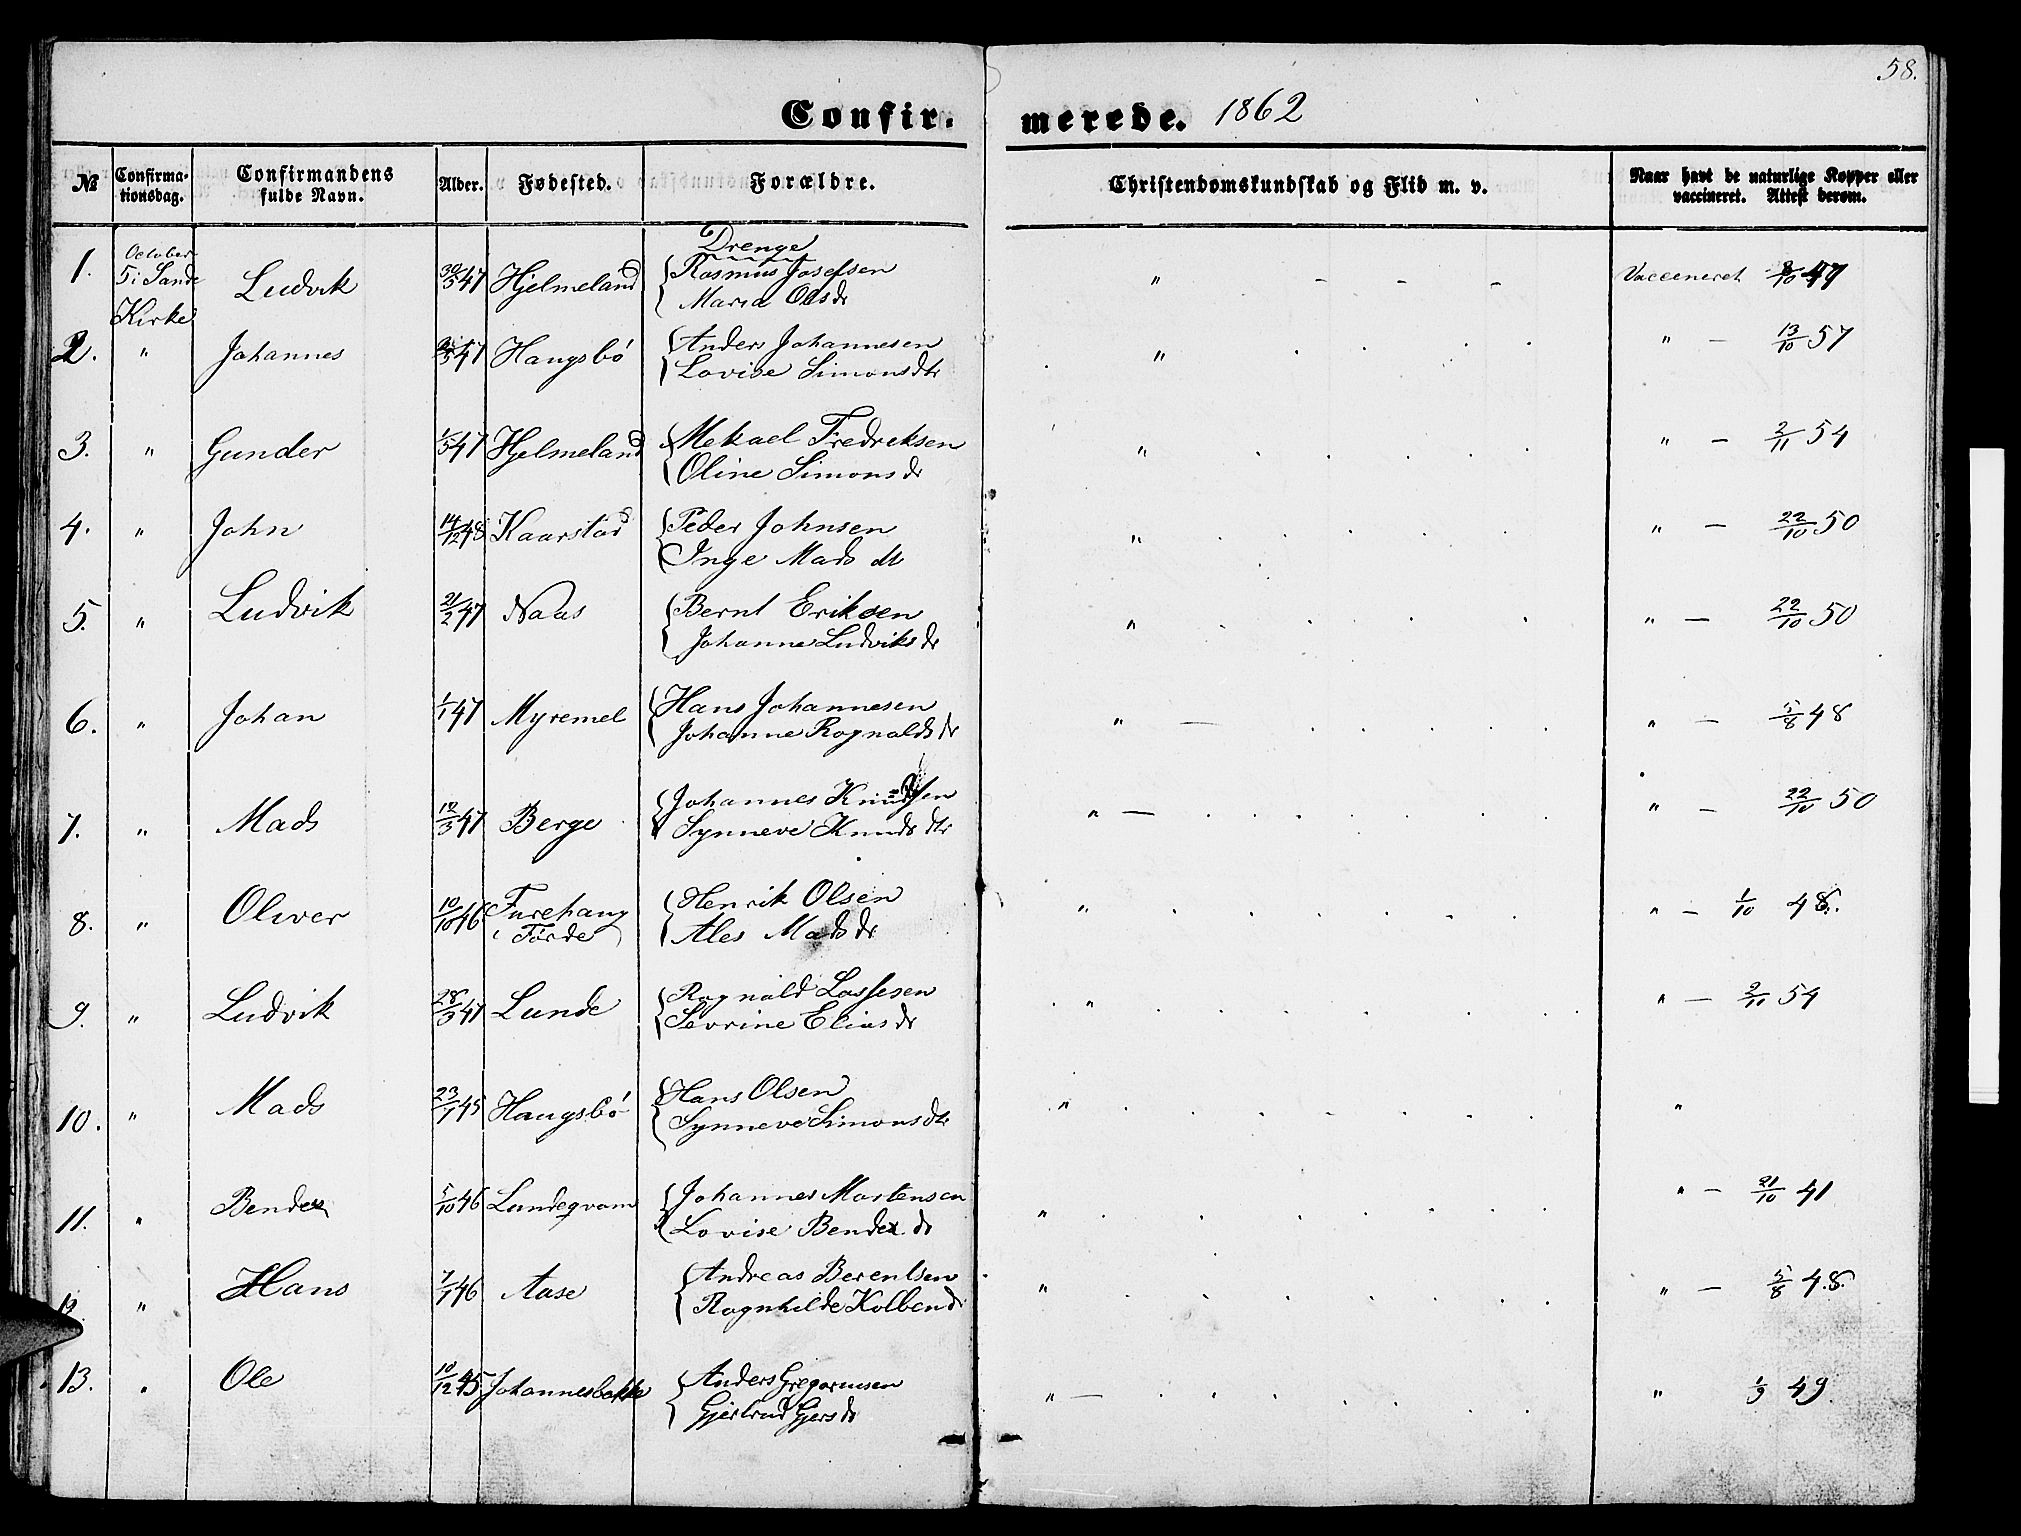 58.
Confir. merede. 1862
№ Confirma- tionsdag. Confirmandens fulde Navn. Alder. Fødested. Forældre. Christendomskundskab og Flid m. v. Naar havt de naturlige Kopper eller vaccineret. Attest derom.
Drenge
1. October 5 i Sande Kirke Ludvik 30/5 47 Hjelmeland { Rasmus Josefsen " - - - Vacceneret /10 49
Maria Olsdr
2. " Johannes /5 47 Haugsbö { Anders Johannesen " " - 13/10 57
Lovise Simonsdtr
3. " Gunder 1/5 47 Hjelmeland { Mekael Fredreksen " " - 2/11 54
Oline Simonsdr
4. " John 14/12 48 Kaarstad { Peder Johnsen " " - 22/10 50
Inge Mads dt
5. " Ludvik 21/2 47 Naas { Bernt Eriksen " " - 22/10 50
Johanne Ludviksdr
6. " Johan 1/1 47 Myremel { Hans Johannesen " - " - 5/8 48
Johanne Rognaldsdr
7. " Mads 12/3 47 Berge { Johannes Knudsen " - " - 22/10 50
Synneve Knudsdtr
8. " Oliver 10/10 46 Furehaug i Förde { Henrik Olsen " " - 1/10 48.
Ales Madsdr
9. " Ludvik 28/3 47 Lunde { Rognald Lassesen " " - 2/11 54
Sevrine Eliasdr
10. " Mads 23/1 45 Haugsbö { Hans Olsen " "
Synneve Simonsdtr
11. " Bendex 5/10 46 Lundeqvam { Johannes Mortensen " " - 21/10 41
Lovise Bendex. dr
12. " Hans 7/1 46 Aase { Andreas Berentsen " " - 5/8 48.
Rognhilde Kolbend
13. " Ole 10/12 45 Johannesbakke { Anders Gregoriusen " - " 1/9 49.
Gjertrud Gjersdr